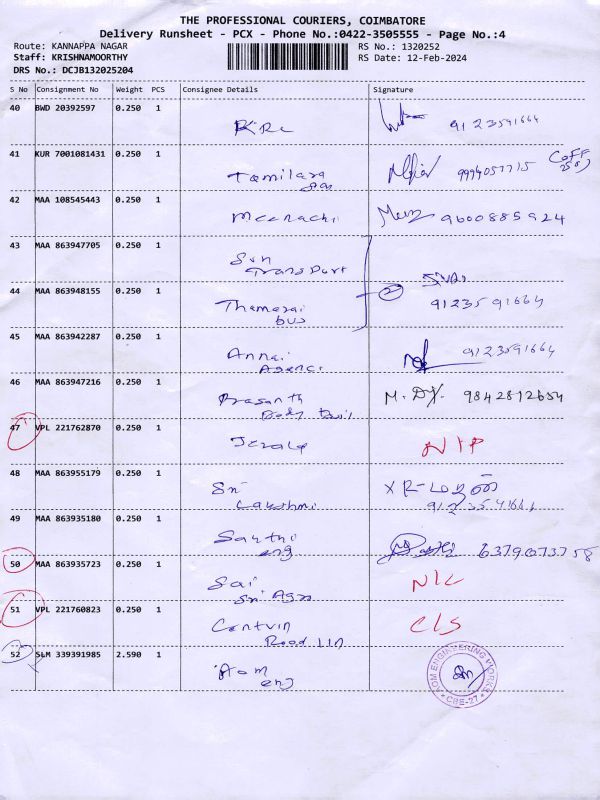 THE PROFESSIONAL COURIERS, COIMBATORE
Delivery Runsheet - PCX - Phone No.:0422-3505555 - Page No.:4
Route: KANNAPPA NAGAR
RS No.: 1320252
Staff: KRISHNAMOORTHY
RS Date: 12-Feb-2024
DRS No.: DCJB132025204
S No Consignment No Weight PCS Consignee Details Signature
40 BWD 20392597 0.250 1
9123591664
41 KUR 7001081431 0.250 1
Tamilarasan 9994057715
42 MAA 108545443 0.250 1
Meenachi 9600885924
43 MAA 863947705 0.250 1
Sun
Transport
44 MAA 863948155 0.250 1
Siva
Thamarai 2 9123591664
bus
45 MAA 863942287 0.250 1
Annai 9123591664
Agenci
46 MAA 863947216 0.250 1
Prasanth 9842812654
Body
47 VPL 221762870 0.250 1
48 MAA 863955179 0.250 1
Sri
Lakshmi
49 MAA 863935180 0.250 1
Santhi 6379073758
eng
50 MAA 863935723 0.250 1
Sai N/C
Sri Agro
51 VPL 221760823 0.250 1
CLS
Road
52 SLM 339391985 2.590 1
Aom
eng
AOM ENGINEERING WORKS
CBE-27